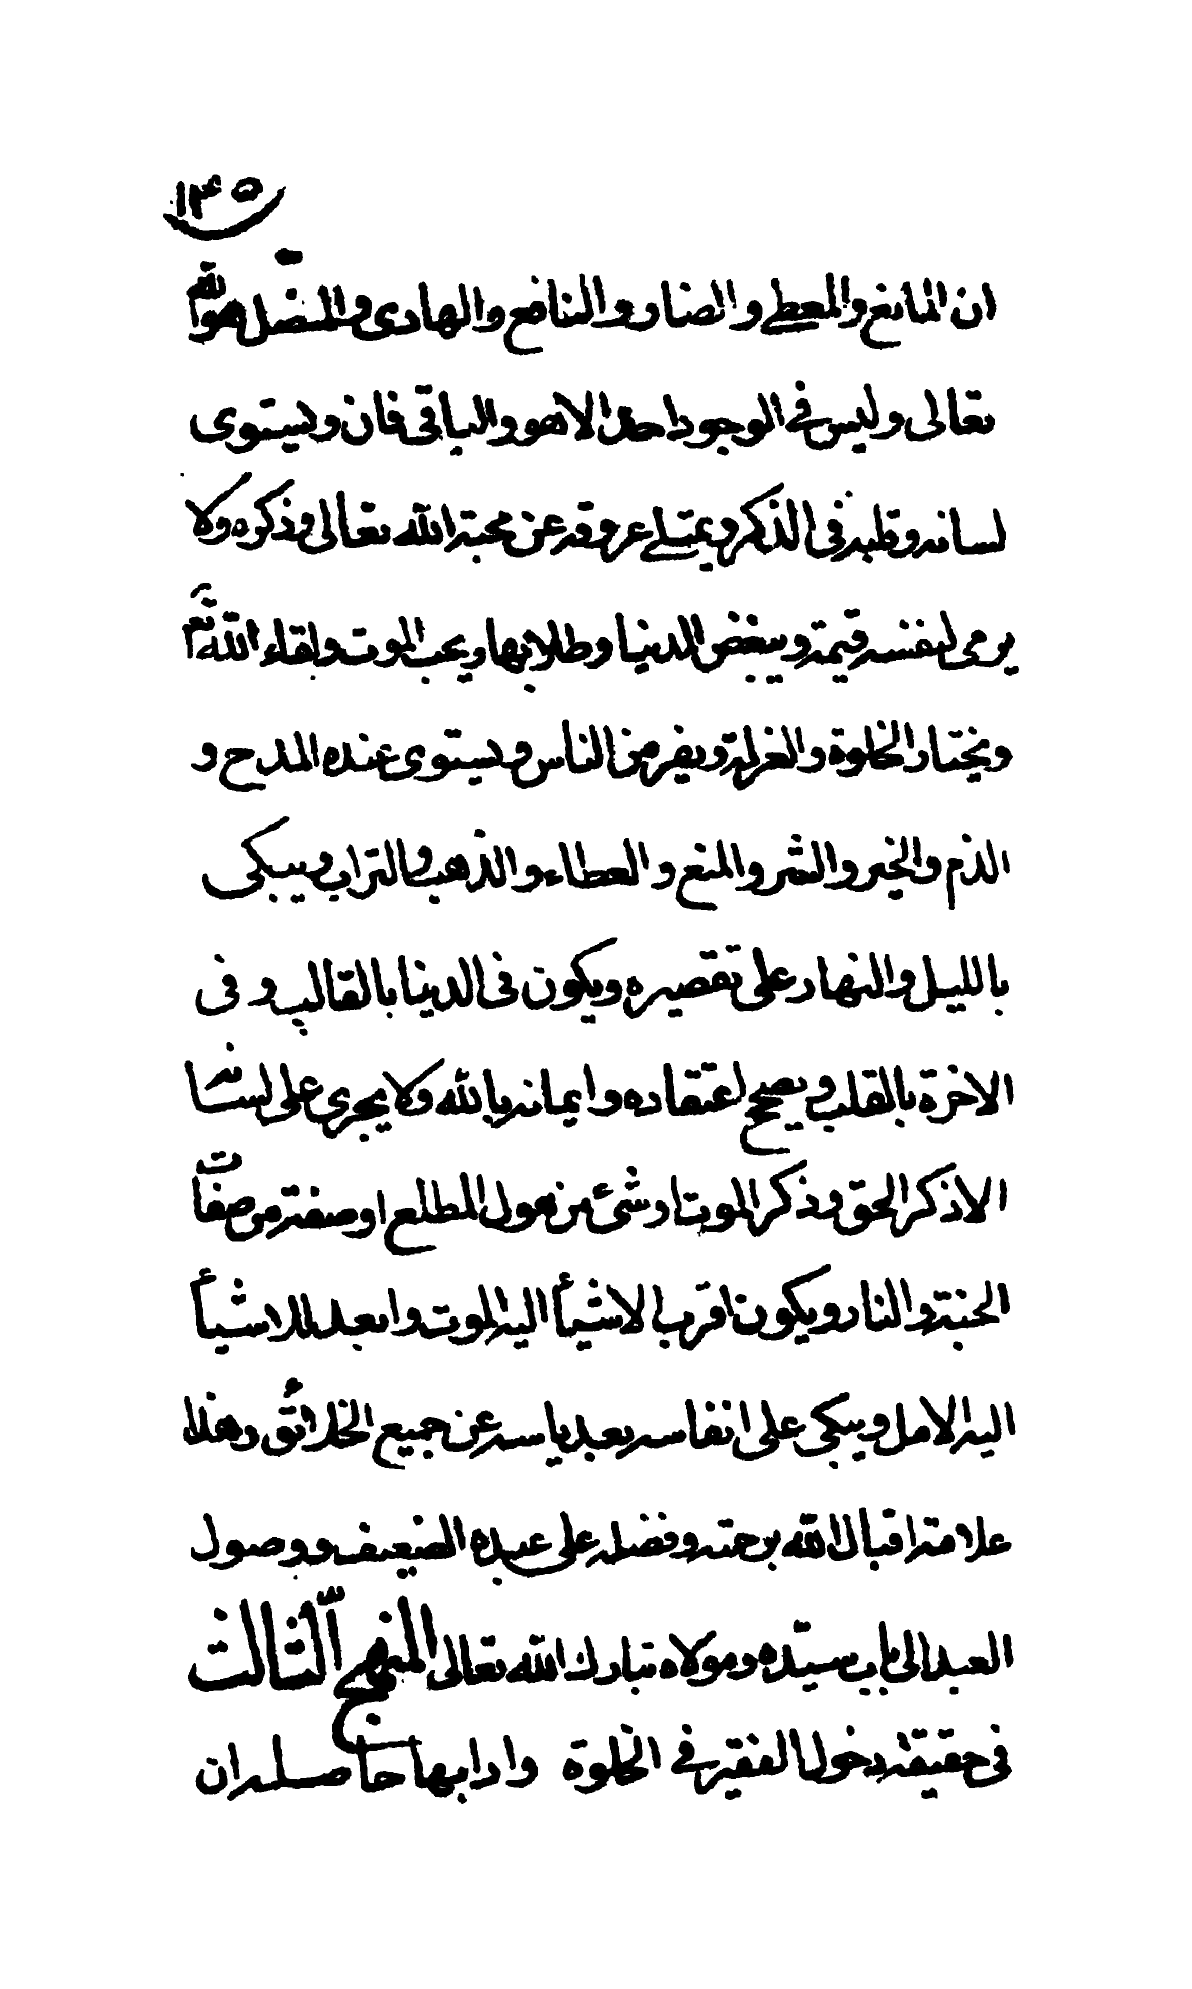 ١٣٥
ان المانع والمعطى والضار والنافع والهادى والمضل هو الله
تعالى وليس فى الوجود احد الا هو والباقى فان ويستوى
لسانه وقلبه فى الذكر ويمتلى عروقه عن محبة الله تعالى وذكره ولا
يرى لنفسه قيمة ويبغض الدنيا وطلابها ويحب الموت ولقاء الله تع
ويختار الخلوة والعزلة ويفر من الناس ويستوى عنده المدح و
الذم والخير والشر والمنع والعطاء والذهب والتراب ويبكى
بالليل والنهار على تقصيره ويكون فى الدنيا بالقالب وفى
الاخرة بالقلب ويصح اعتقاده وايمانه بالله ولا يجرى على لسانه
الا ذكر الحق وذكر الموت او شئ من هول المطلع او صفة من صفات
الجنة والنار ويكون اقرب الاشيأ اليه الموت وابعد الاشيأ
اليه الامل ويبكى على انفاسه بعد ياسه عن جميع الخلائق وهذا
علامة اقبال الله برحمته وفضله على عبده الضعيف ووصول
العبد الى باب سيّده ومولاه تبارك الله تعالى المنهج الثّالث
فى حقيقة دخول الفقير فى الخلوة وادابها حاصله ان